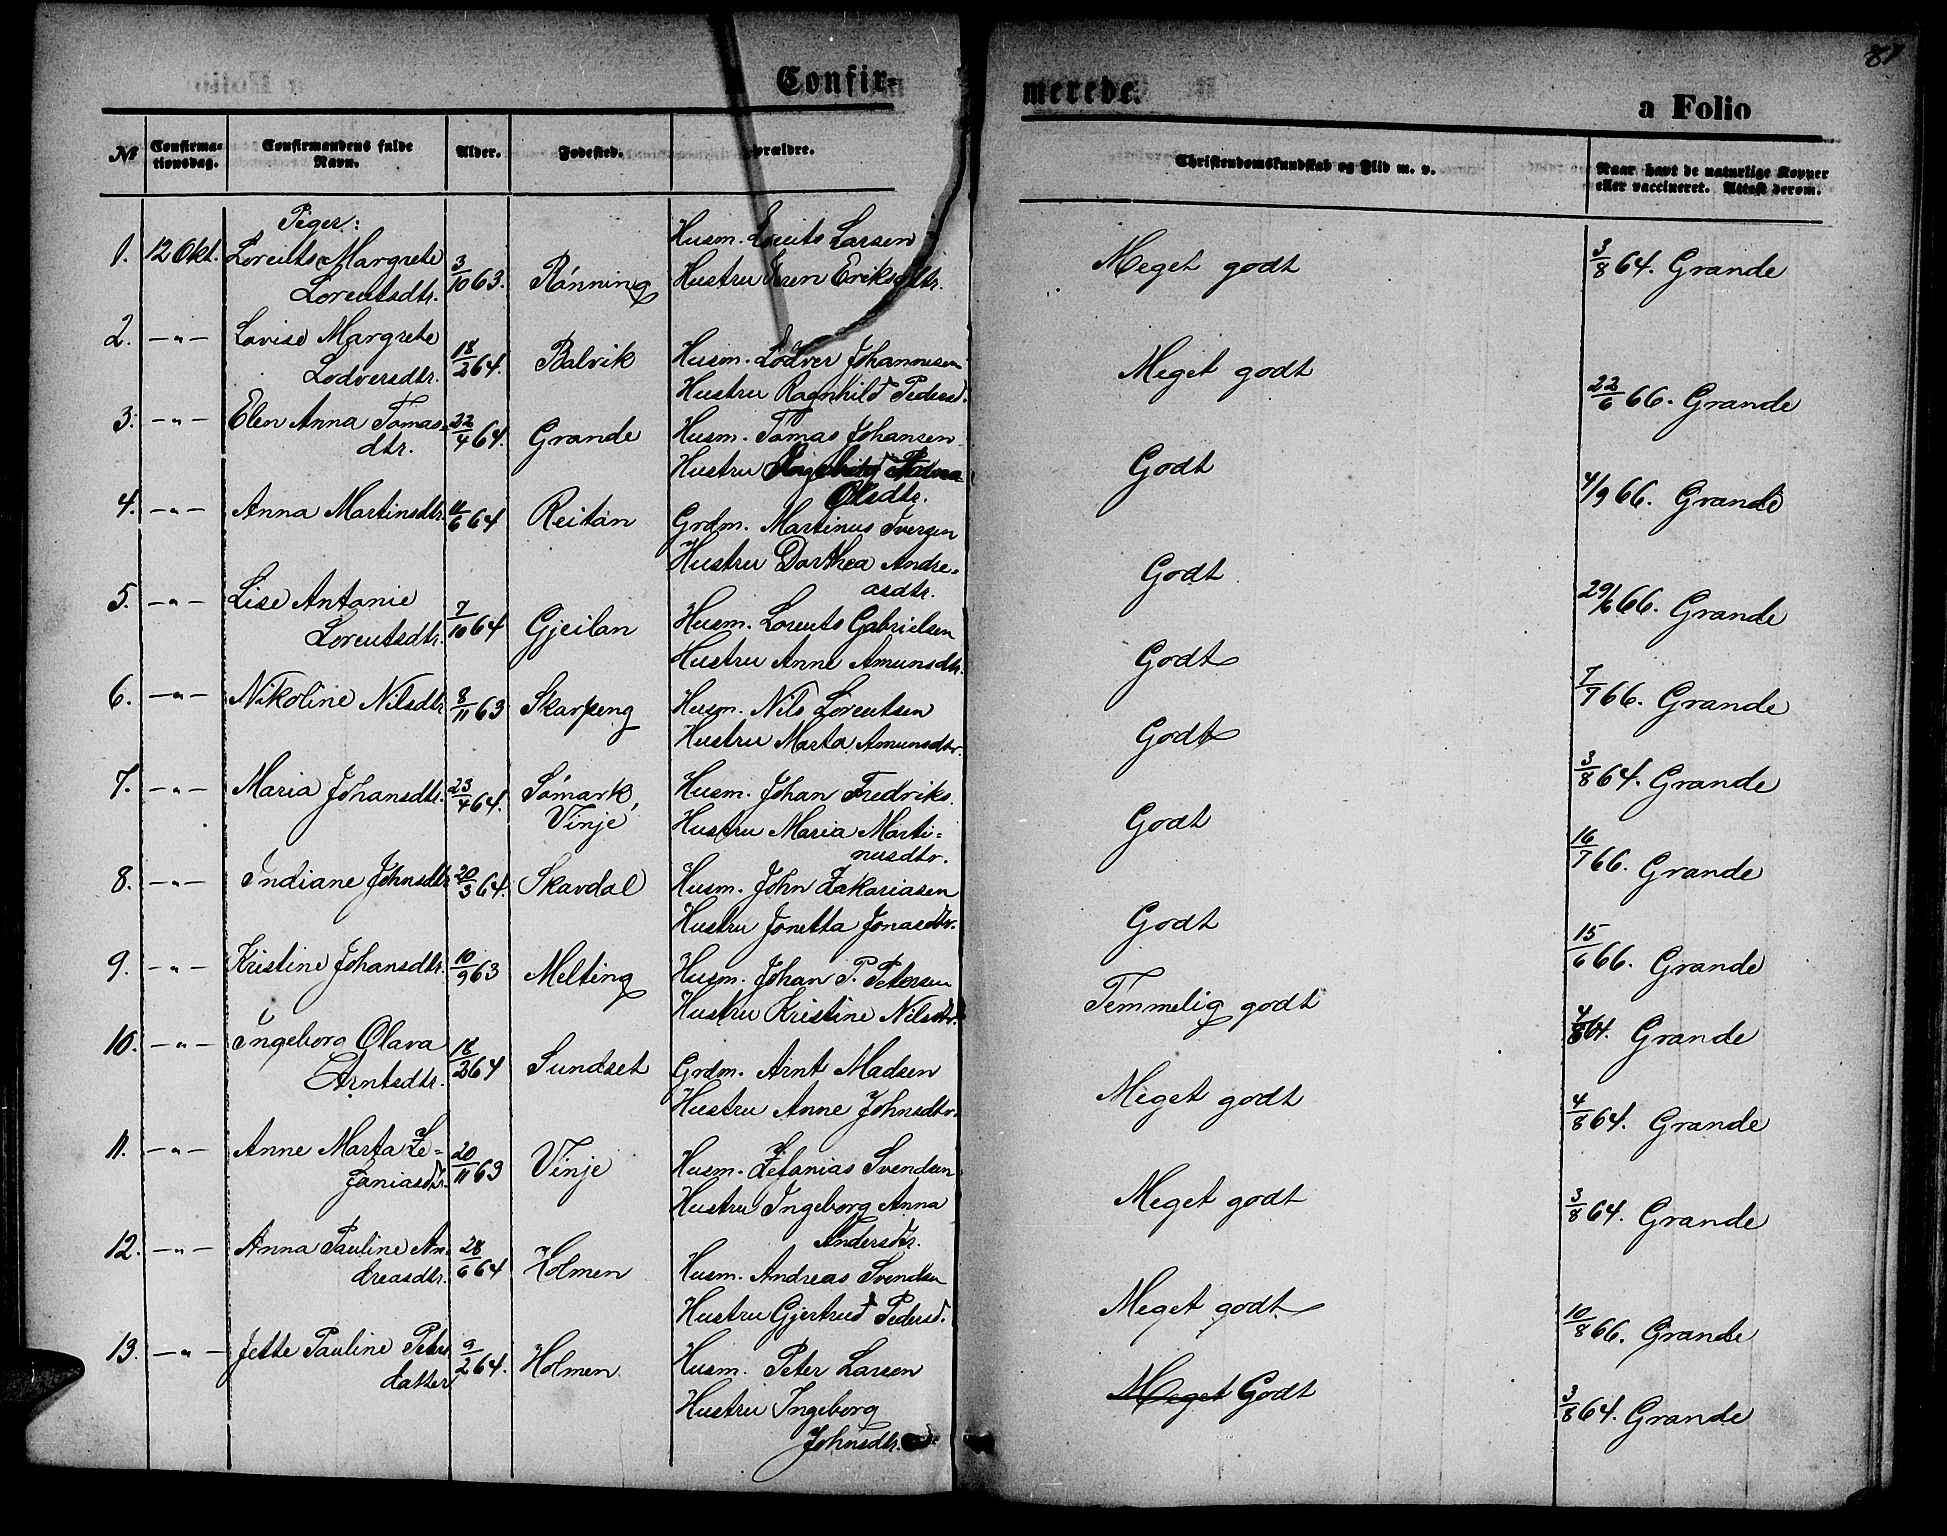 87
Confir-
merede.
a Folio
No
Confirma-
tionsdag.
Confirmandens fulde
Navn.
Alder.
Fødested.
Forældre.
Christendomskundskab og Flid m. v.
Naar havt de naturlige Kopper
eller vaccineret. Attest derom.
Piger:
1. 12 Okt. Lorentse Margrete Lorentsdtr. 3/10 63. Rønning Husm. Lorents Larsen
Hustru Eren Eriksdtr. Meget godt 3/8 64. Grande
2. -"- Lovise Margrete
Lodversdtr. 18/2 64. Balvik Husm. Lodver Johannesen
Hustru Ragnhild Pedersd. Meget godt 22/6 66. Grande
3. -"- Elen Anna Tomas-
dtr. 22/4 64. Grande Husm. Tomas Johansen
Hustru
Olsdtr. Godt 4/9 66. Grande
4. -"- Anna Martinsdtr. 11/6 64 Reitan Grdm. Martinus Iversen
Hustru Dorthea Andre-
asdtr. Godt 29/6 66. Grande
5. -"- Lise Antonie
Lorentsdtr. 7/10 64 Gjeilan Husm. Lorents Gabrielsen
Hustru Anne Amunsdtr. Godt 7/7 66. Grande
6. -"- Nikoline Nilsdtr. 8/11 63 Skarpeng Husm. Nils Lorentsen
Hustru Marta Amunsdtr. Godt 3/8 64. Grande
7. -"- Maria Johansdtr. 23/4 64. Sømark,
Vinje Husm. Johan Fredriks.
Hustru Maria Marti-
nusdtr. Godt 16/7 66. Grande
8. -"- Indiane Johnsdtr 20/3 64. Skavdal Husm. John Zakariasen
Hustru Jonetta Jonasdtr. Godt 15/6 66. Grande
9. -"- Kristine Johansdtr. 10/9 63 Melting Husm. Johan P. Petersen
Hustru Kristine Nilsdtr. Temmelig godt 4/8 64. Grande
10. -"- Ingeborg Olava
Arntsdtr. 18/2 64 Sundset Grdm. Arnt Madsen
Hustru Anne Johnsdtr. Meget godt 4/8 64. Grande
11. -"- Anne Marta Ze-
faniasdtr. 20/11 63 Vinje Husm. Zefanias Svendsen
Hustru Ingeborg Anna
Andersdtr. Meget godt 3/8 64. Grande
12. -"- Anna Pauline An-
dreasdtr. 28/6 64 Holmen Husm. Andreas Svendsen
Hustru Gjertrud Pedersd. Meget godt 10/8 66. Grande
13. -"- Jette Pauline Peters
datter 9/2 64. Holmen Husm. Peter Larsen
Hustru Ingeborg
Johnsdtr. Meget Godt 3/8 64. Grande